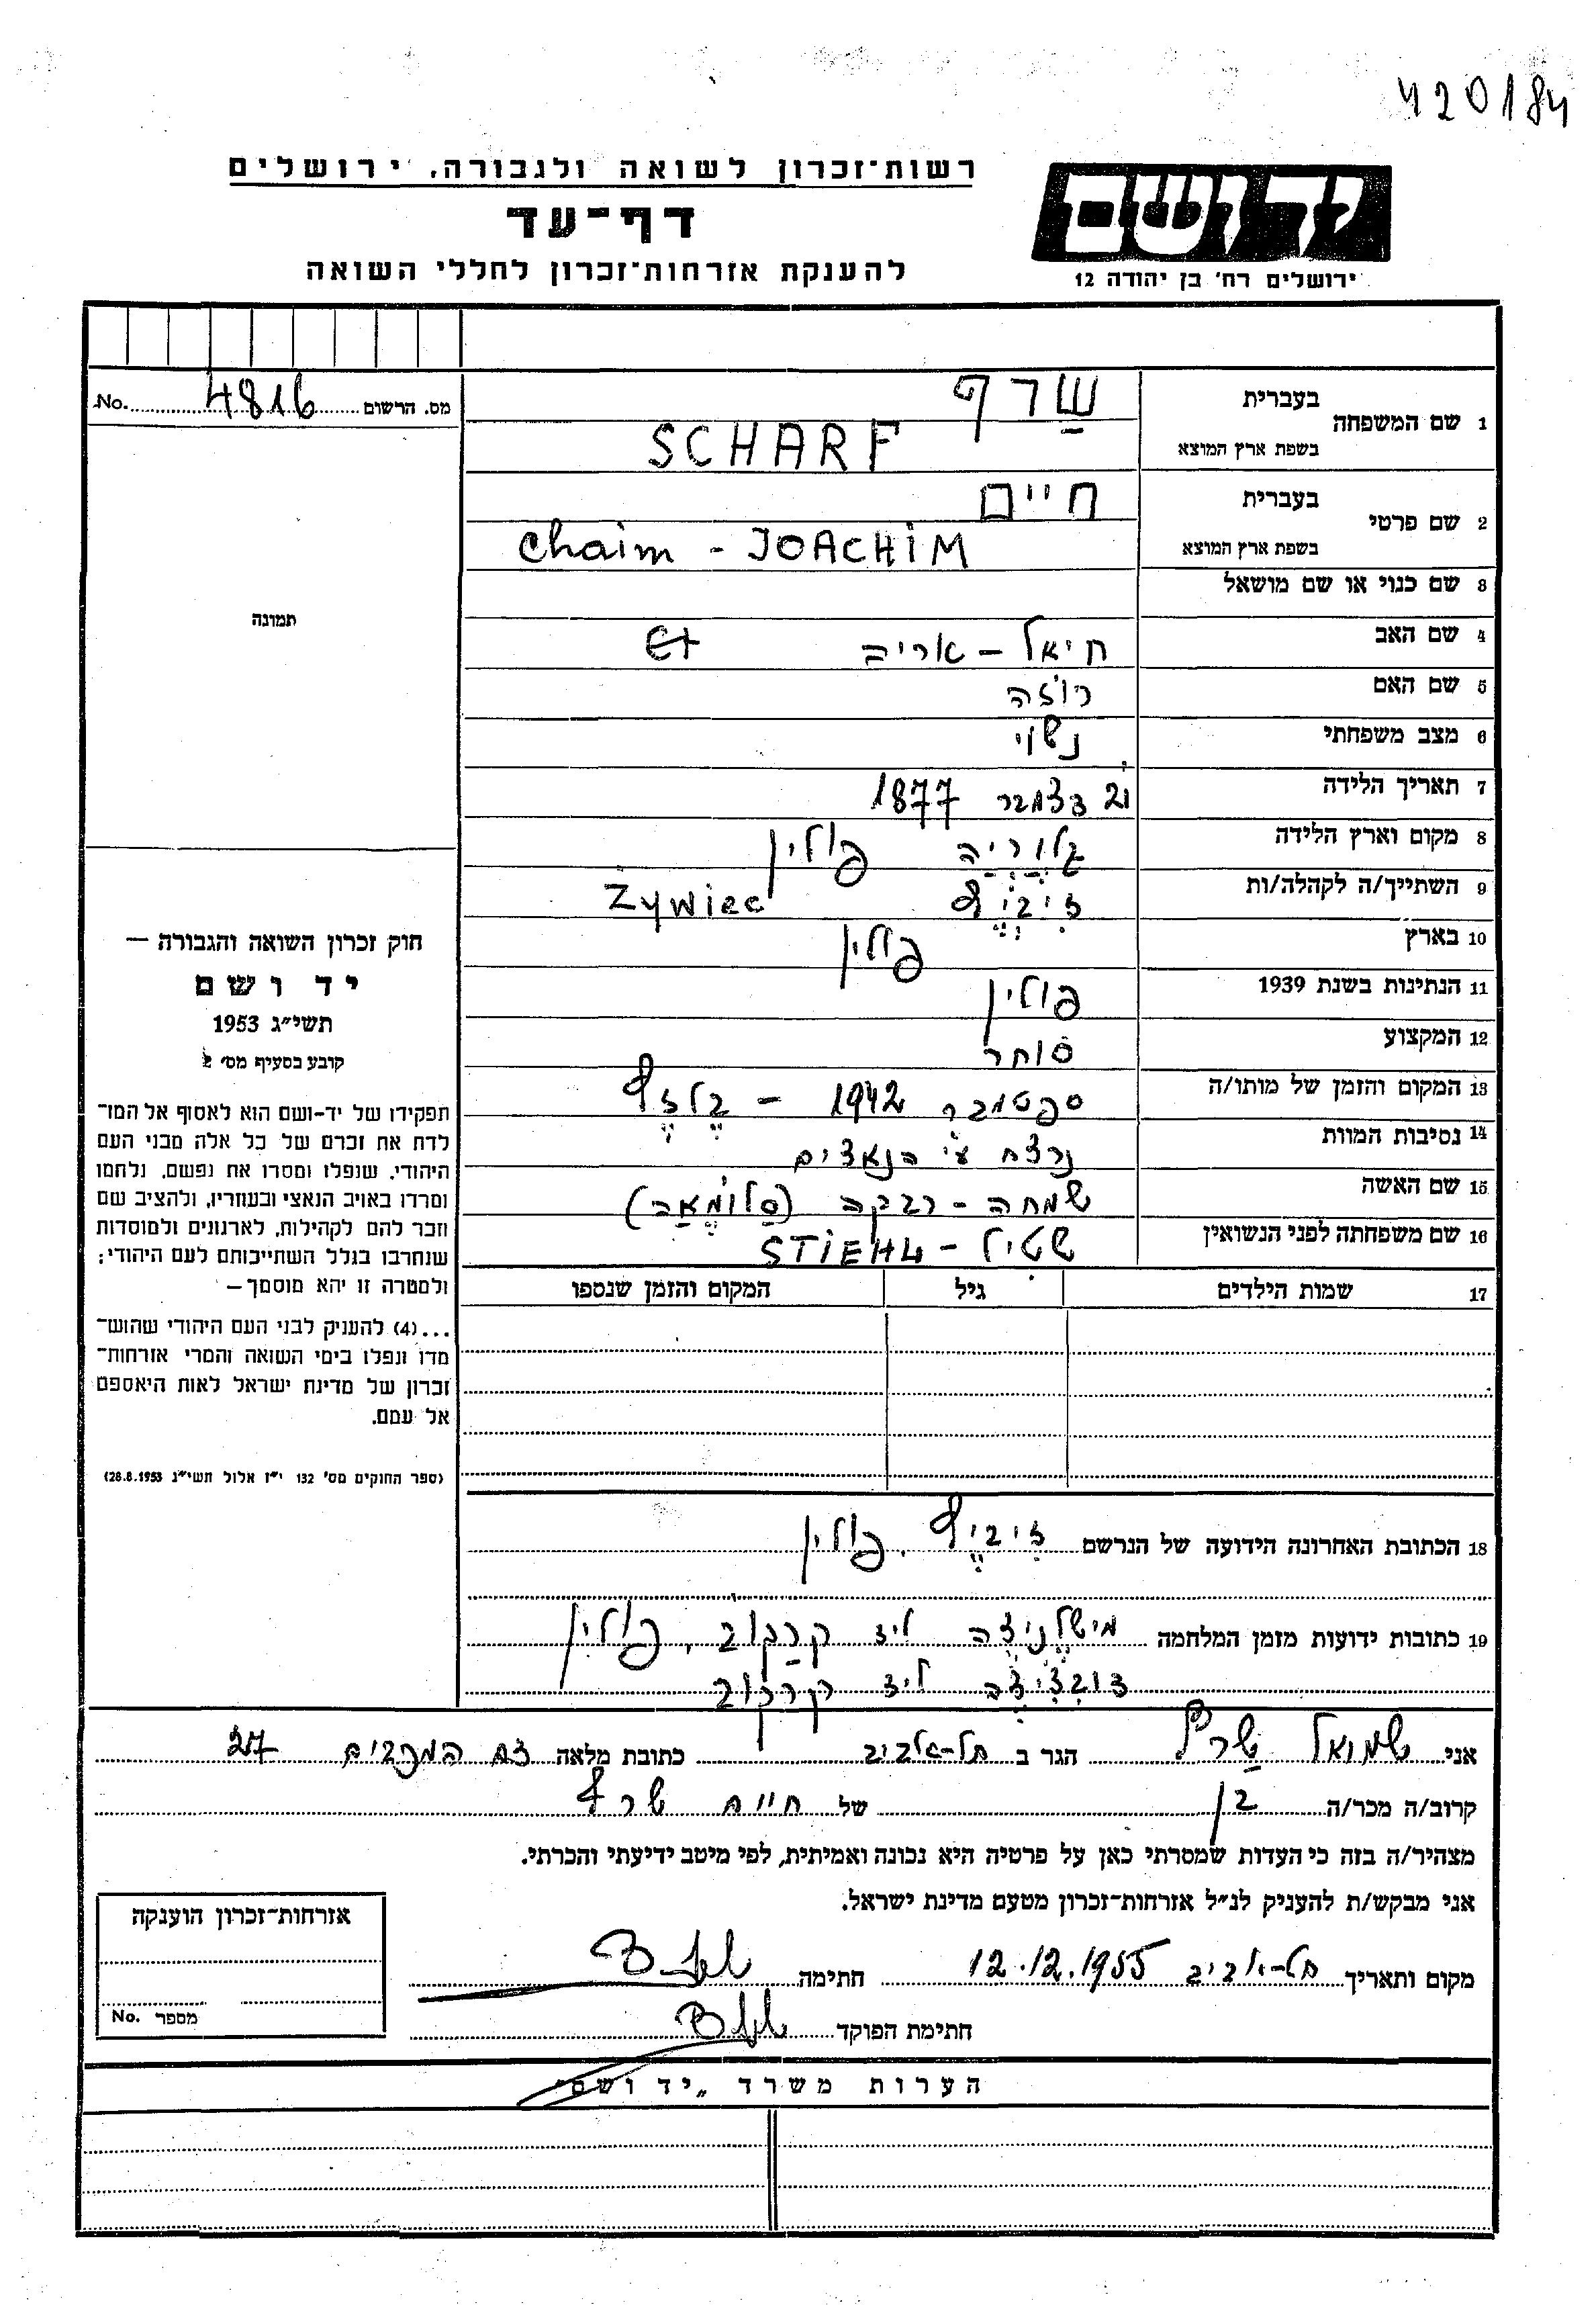 420184
רשות־זכרון לשואה ולגבורה, ירושלים
דף־עד
להענקת אזרחות־זכרון לחללי השואה
יד ושם
ירושלים רח' בן יהודה 12
מס. הרשום 4816 No.
תמונה
חוק זכרון השואה והגבורה —
יד ושם
תשי״ג 1953
קובע בסעיף מס' 2
תפקידו של יד-ושם הוא לאסוף אל המו־
לדת את זכרם של כל אלה מבני העם
היהודי, שנפלו ומסרו את נפשם, נלחמו
ומרדו באויב הנאצי ובעוזריו, ולהציב שם
וזכר להם לקהילות, לארגונים ולמוסדות
שנחרבו בגלל השתייכותם לעם היהודי;
ולמטרה זו יהא מוסמך —
...(4) להעניק לבני העם היהודי שהוש־
מדו ונפלו בימי השואה והמרי אזרחות־
זכרון של מדינת ישראל לאות היאספם
אל עמם.
(ספר החוקים מס' 132 י״ז אלול תשי״ג 28.8.1953)
1 שם המשפחה בעברית שַרף
בשפת ארץ המוצא SCHARF
2 שם פרטי בעברית חיים
בשפת ארץ המוצא Chaim - JOACHIM
3 שם כנוי או שם מושאל
4 שם האב חיאל - אריה
5 שם האם רוזה
6 מצב משפחתי נשוי
7 תאריך הלידה 21 דצמבר 1877
8 מקום וארץ הלידה פולין
9 השתייך/ה לקהלה/ות זִיבְיֶץ Zywiec
10 בארץ פולין
11 הנתינות בשנת 1939 פולין
12 המקצוע סוחר
13 המקום והזמן של מותו/ה ספטמבר 1942 - בֶלזֶץ
14 נסיבות המוות נרצח ע״י הנאצים
15 שם האשה שמחה - רבקה (סַלוֹמֶאַה)
16 שם משפחתה לפני הנשואין שטיל - STIEHL
17 שמות הילדים גיל המקום והזמן שנספו
18 הכתובת האחרונה הידועה של הנרשם זִיביֶץ, פולין
19 כתובות ידועות מזמן המלחמה מישלֶנִיצֶה ליד קרַקוב, פולין
דוֹבְצִ׳יצֶה ליד קרקוב
אני שמואל שַרף הגר ב תל-אביב כתובת מלאה המכבים 27
קרוב/ה מכר/ה בן של חיים שרף
מצהיר/ה בזה כי העדות שמסרתי כאן על פרטיה היא נכונה ואמיתית, לפי מיטב ידיעתי והכרתי.
אני מבקש/ת להעניק לנ״ל אזרחות־זכרון מטעם מדינת ישראל.
מקום ותאריך תל-אביב 12.12.1955 חתימה
חתימת הפוקד
אזרחות־זכרון הוענקה
מספר No.
הערות משרד „יד ושם״